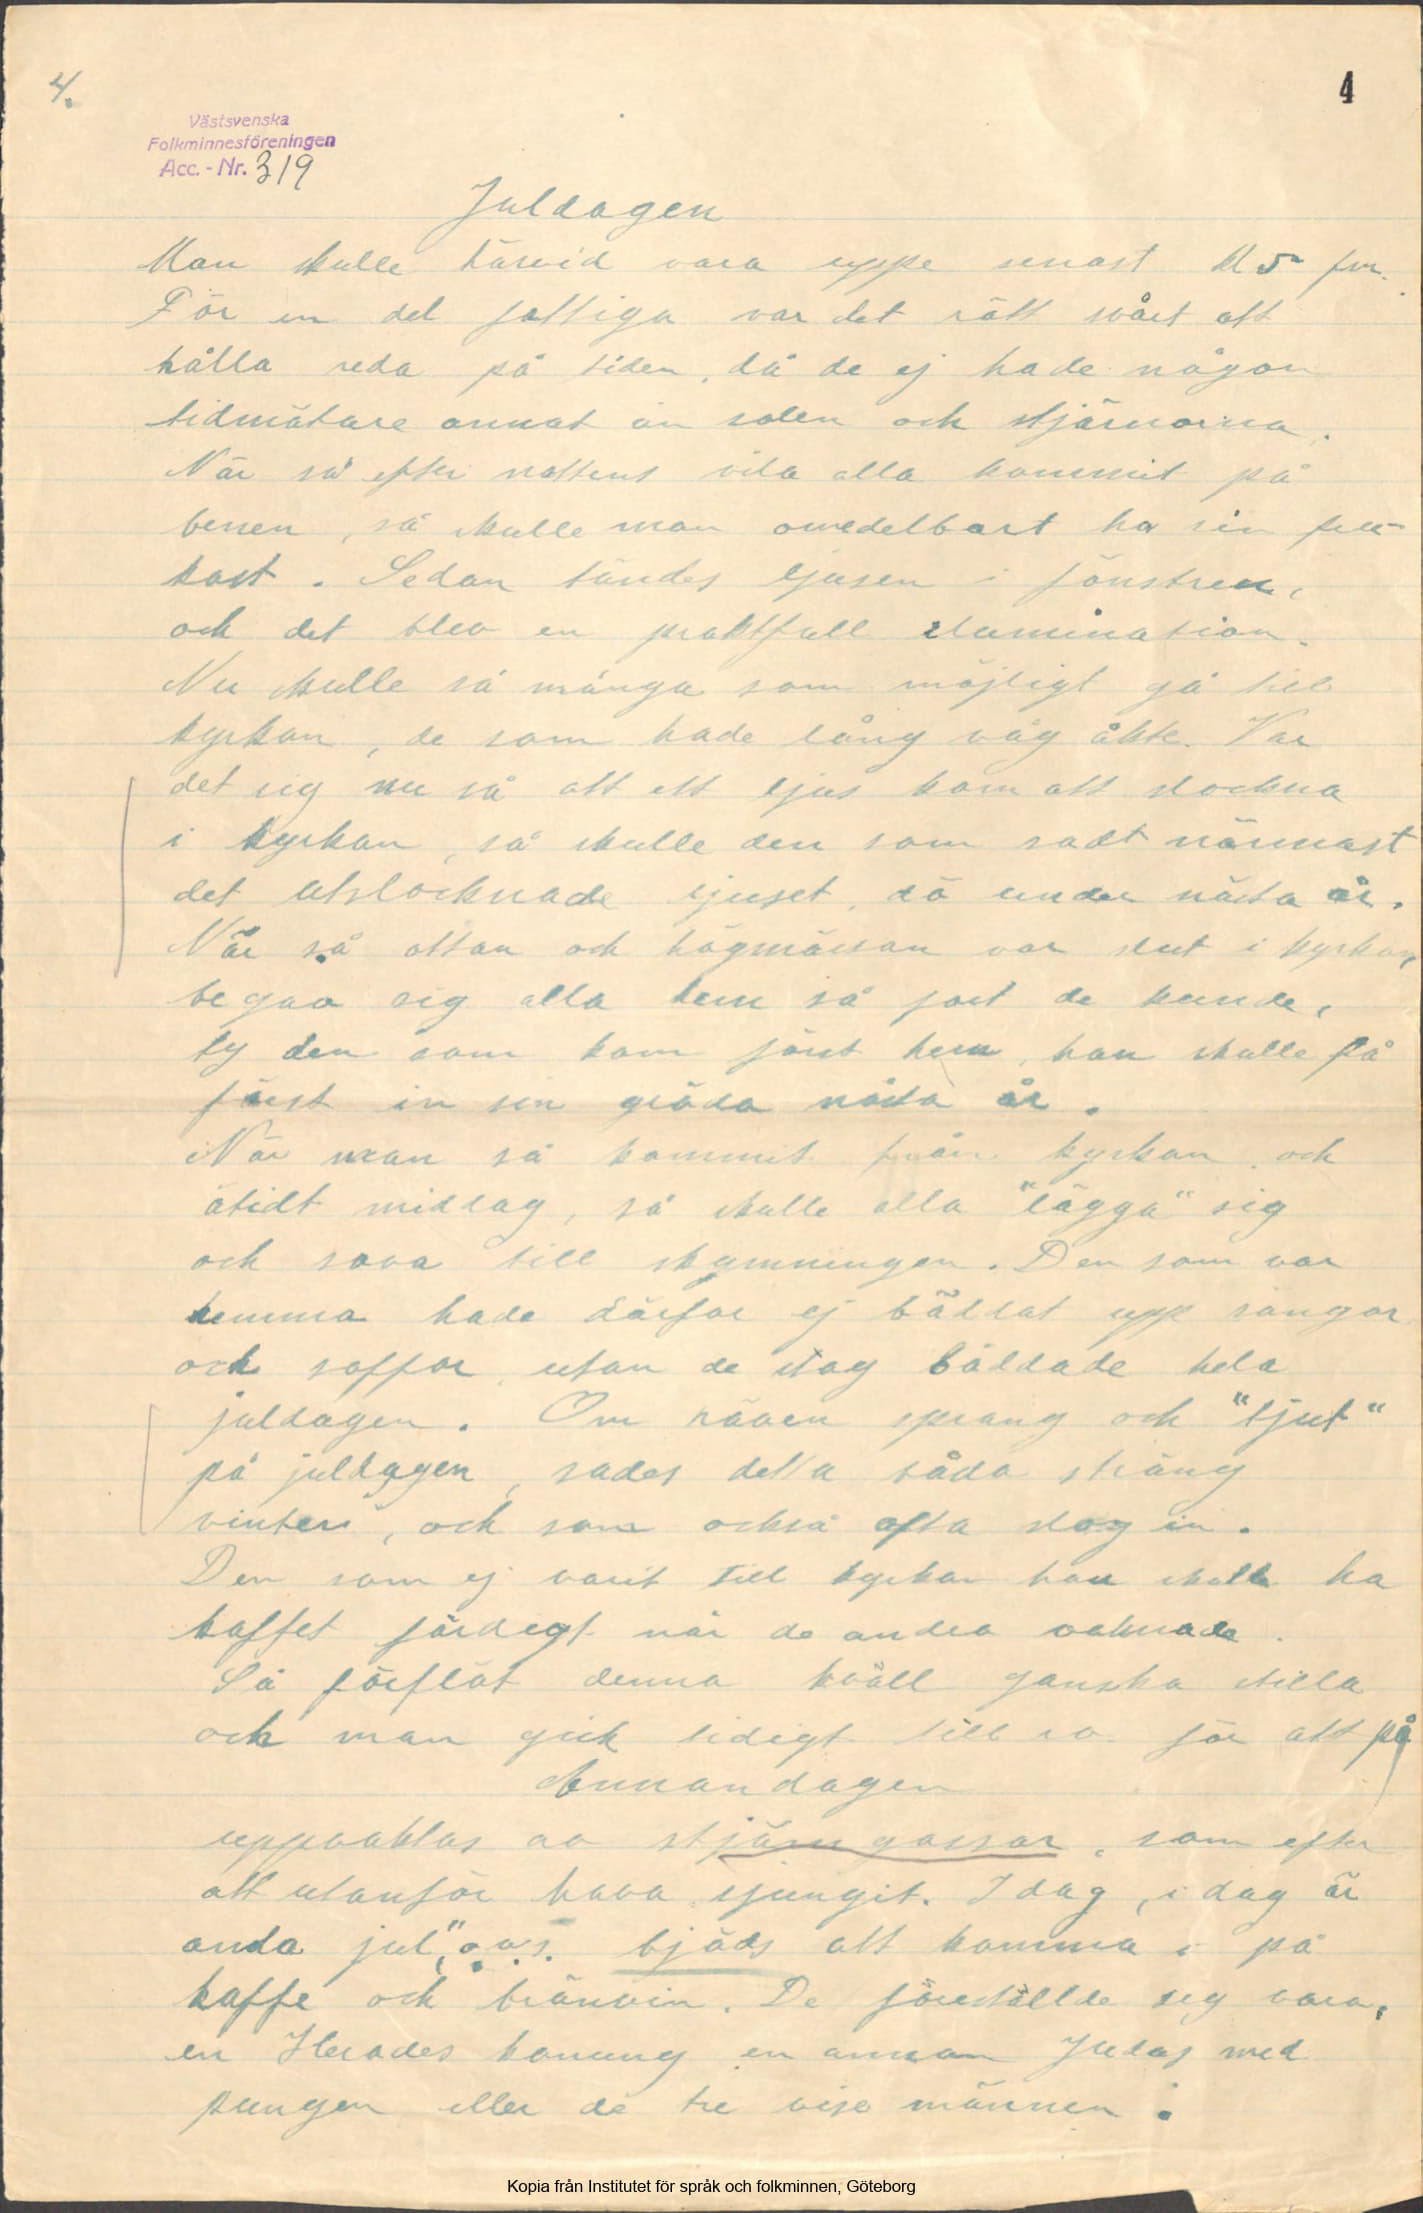 4.
4
Västsvenska
Folkminnesföreningen
Acc. - Nr. 319
Juldagen
Man skulle härvid vara uppe senast kl 5 fm.
För en del fattiga var det rätt svårt att
hålla reda på tiden, då de ej hade någon
tidmätare annat än solen och stjärnorna.
När så efter nattens vila alla kommit på
benen, så skulle man omedelbart ha sin fru-
kost. Sedan tändes ljusen i fönstren,
och det blev en praktfull illumination.
Nu skulle så många som möjligt gå till
kyrkan, de som hade lång väg åkte. Var
det sig nu så att ett ljus kom att slockna
i kyrkan, så skulle den som satt närmast
det utslocknade ljuset, dö under nästa år.
När så ottan och högmässan var slut i kyrkan,
begav sig alla hem så fort de kunde,
ty den som kom först hem, han skulle få
först in sin gröda nästa år.
När man så kommit från kyrkan och
ätidt middag, så skulle alla "lägga" sig
och sova till skymningen. Den som var
hemma hade därför ej bäddat upp sängar
och soffor utan de låg bäddade hela
juldagen. Om räven sprang och "tjut"
på juldagen, sades detta båda sträng
vinter, och som också ofta slog in.
Den som ej varit till kyrkan han skulle ha
kaffet färdigt när de andra vaknade.
Så förflöt denna kväll ganska stilla
och man gick tidigt till ro för att på
Annandagen
uppvaktas av stjärngossar, som efter
att utanför hava sjungit. I dag, i dag är
anda jul", o.s.v. bjöds att komma i på
kaffe och brännvin. De föreställde sig vara,
en Herodes konung en annan Judas med
pungen eller de tre vise männen.
Kopia från Institutet för språk och folkminnen, Göteborg